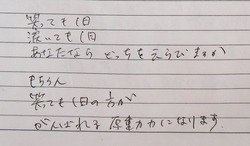 笑っても1日
泣いても1日
あなたなら どっちをえらびますか
もちろん
笑っても1日の方が
がんばれる原動力になります